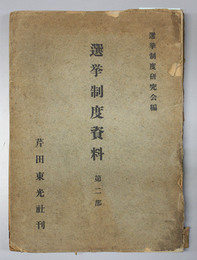 選挙制度研究会編
選挙制度資料 第二部
芹田東光社刊